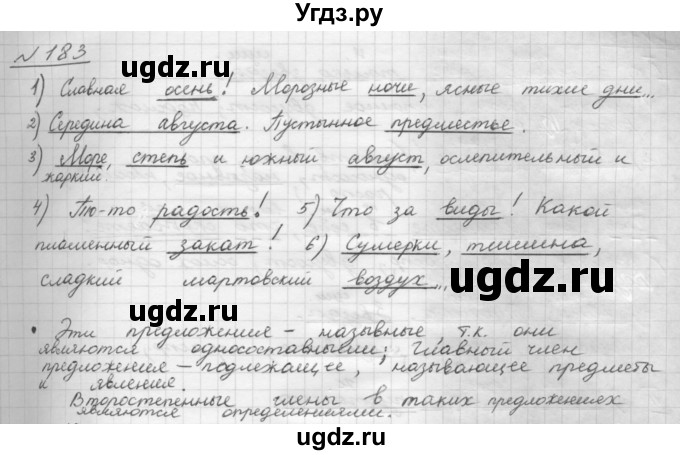 Угдз.ру
N 183
1) Славная осень! Морозные ночи, ясные тихие дни...
2) Середина августа. Пустынное предместье.
3) Море, степь и южный август, ослепительный и
жаркий.
4) То-то радость! 5) Что за виды! Какой
пламенный закат! 6) Сумерки, тишина,
сладкий мартовский воздух...
• Эти предложения – назывные, т.к. они
являются односоставными; Главный член
предложения – подлежащее, называющее предметы
и явления.
Второстепенные члены в таких предложениях
являются определениями.
ugdz.ru
ugdz.ru
ugdz.ru
ugdz.ru
ugdz.ru
ugdz.ru
ugdz.ru
ugdz.ru